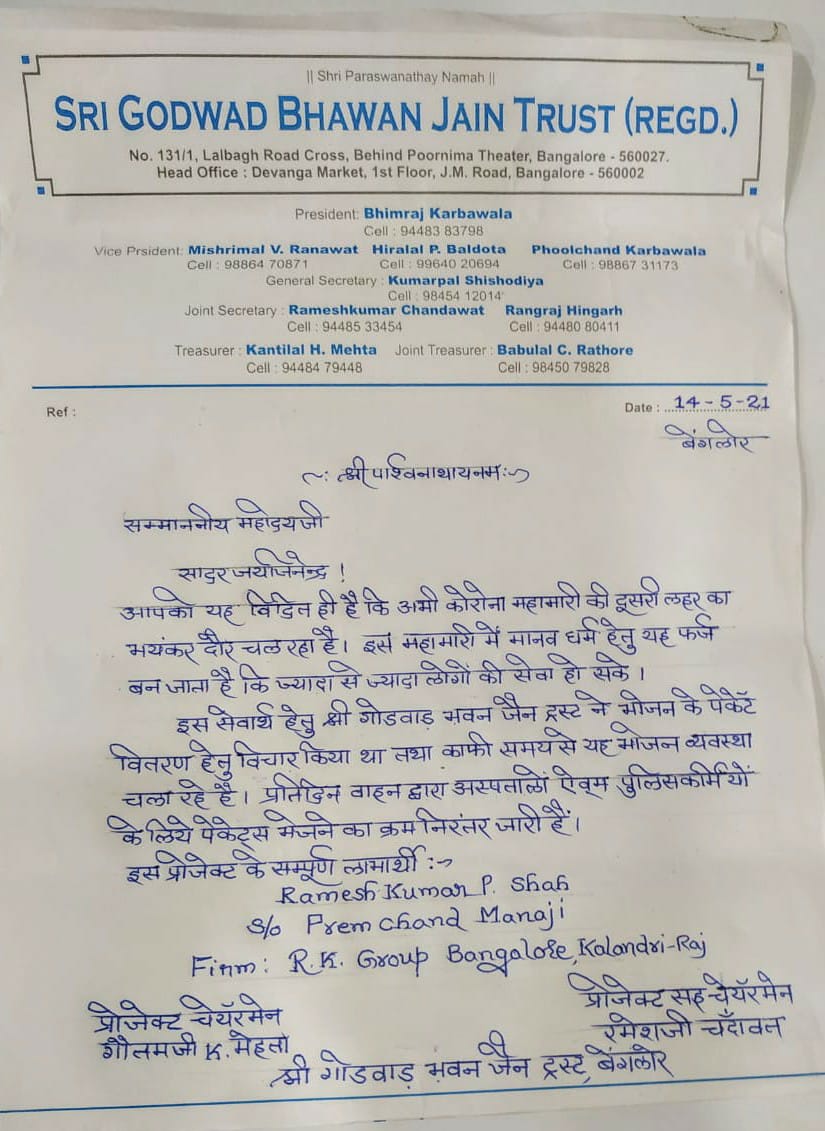 || Shri Paraswanathay Namah ||
SRI GODWAD BHAWAN JAIN TRUST (REGD.)
No. 131/1, Lalbagh Road Cross, Behind Poornima Theater, Bangalore - 560027.
Head Office : Devanga Market, 1st Floor, J.M. Road, Bangalore - 560002
President: Bhimraj Karbawala
Cell : 94483 83798
Vice Prsident: Mishrimal V. Ranawat Hiralal P. Baldota Phoolchand Karbawala
Cell : 98864 70871 Cell : 99640 20694 Cell : 98867 31173
General Secretary : Kumarpal Shishodiya
Cell : 98454 12014
Joint Secretary : Rameshkumar Chandawat Rangraj Hingarh
Cell : 94485 33454 Cell : 94480 80411
Treasurer : Kantilal H. Mehta Joint Treasurer : Babulal C. Rathore
Cell : 94484 79448 Cell : 98450 79828
Ref : Date : 14-5-21
बेंगलोर
~: श्री पार्श्वनाथायनमः~
सम्माननीय महोदयजी
सादर जयजिनेन्द्र !
आपको यह विदित ही है कि अभी कोरोना महामारी की दूसरी लहर का
भयंकर दौर चल रहा है। इस महामारी में मानव धर्म हेतु यह फर्ज
बन जाता है कि ज्यादा से ज्यादा लोगों की सेवा हो सके।
इस सेवार्थ हेतु श्री गोडवाड़ भवन जैन ट्रस्ट ने भोजन के पेकेट
वितरण हेतु विचार किया था तथा काफी समय से यह भोजन व्यवस्था
चला रहे है। प्रतिदिन वाहन द्वारा अस्पतालों ऐवम् पुलिसकर्मियों
के लिये पेकेट्स भेजने का क्रम निरंतर जारी हैं।
इस प्रोजेक्ट के सम्पूर्ण लाभार्थी :~
Ramesh Kumar P. Shah
S/o Prem Chand Manaji
Firm : R.K. Group Bangalore, Kalandri-Raj
प्रोजेक्ट सह चेयॅरमेन
प्रोजेक्ट चेयॅरमेन
रमेशजी चँदावत
गौतमजी K. मेहता
श्री गोडवाड़ भवन जैन ट्रस्ट, बेंगलोर